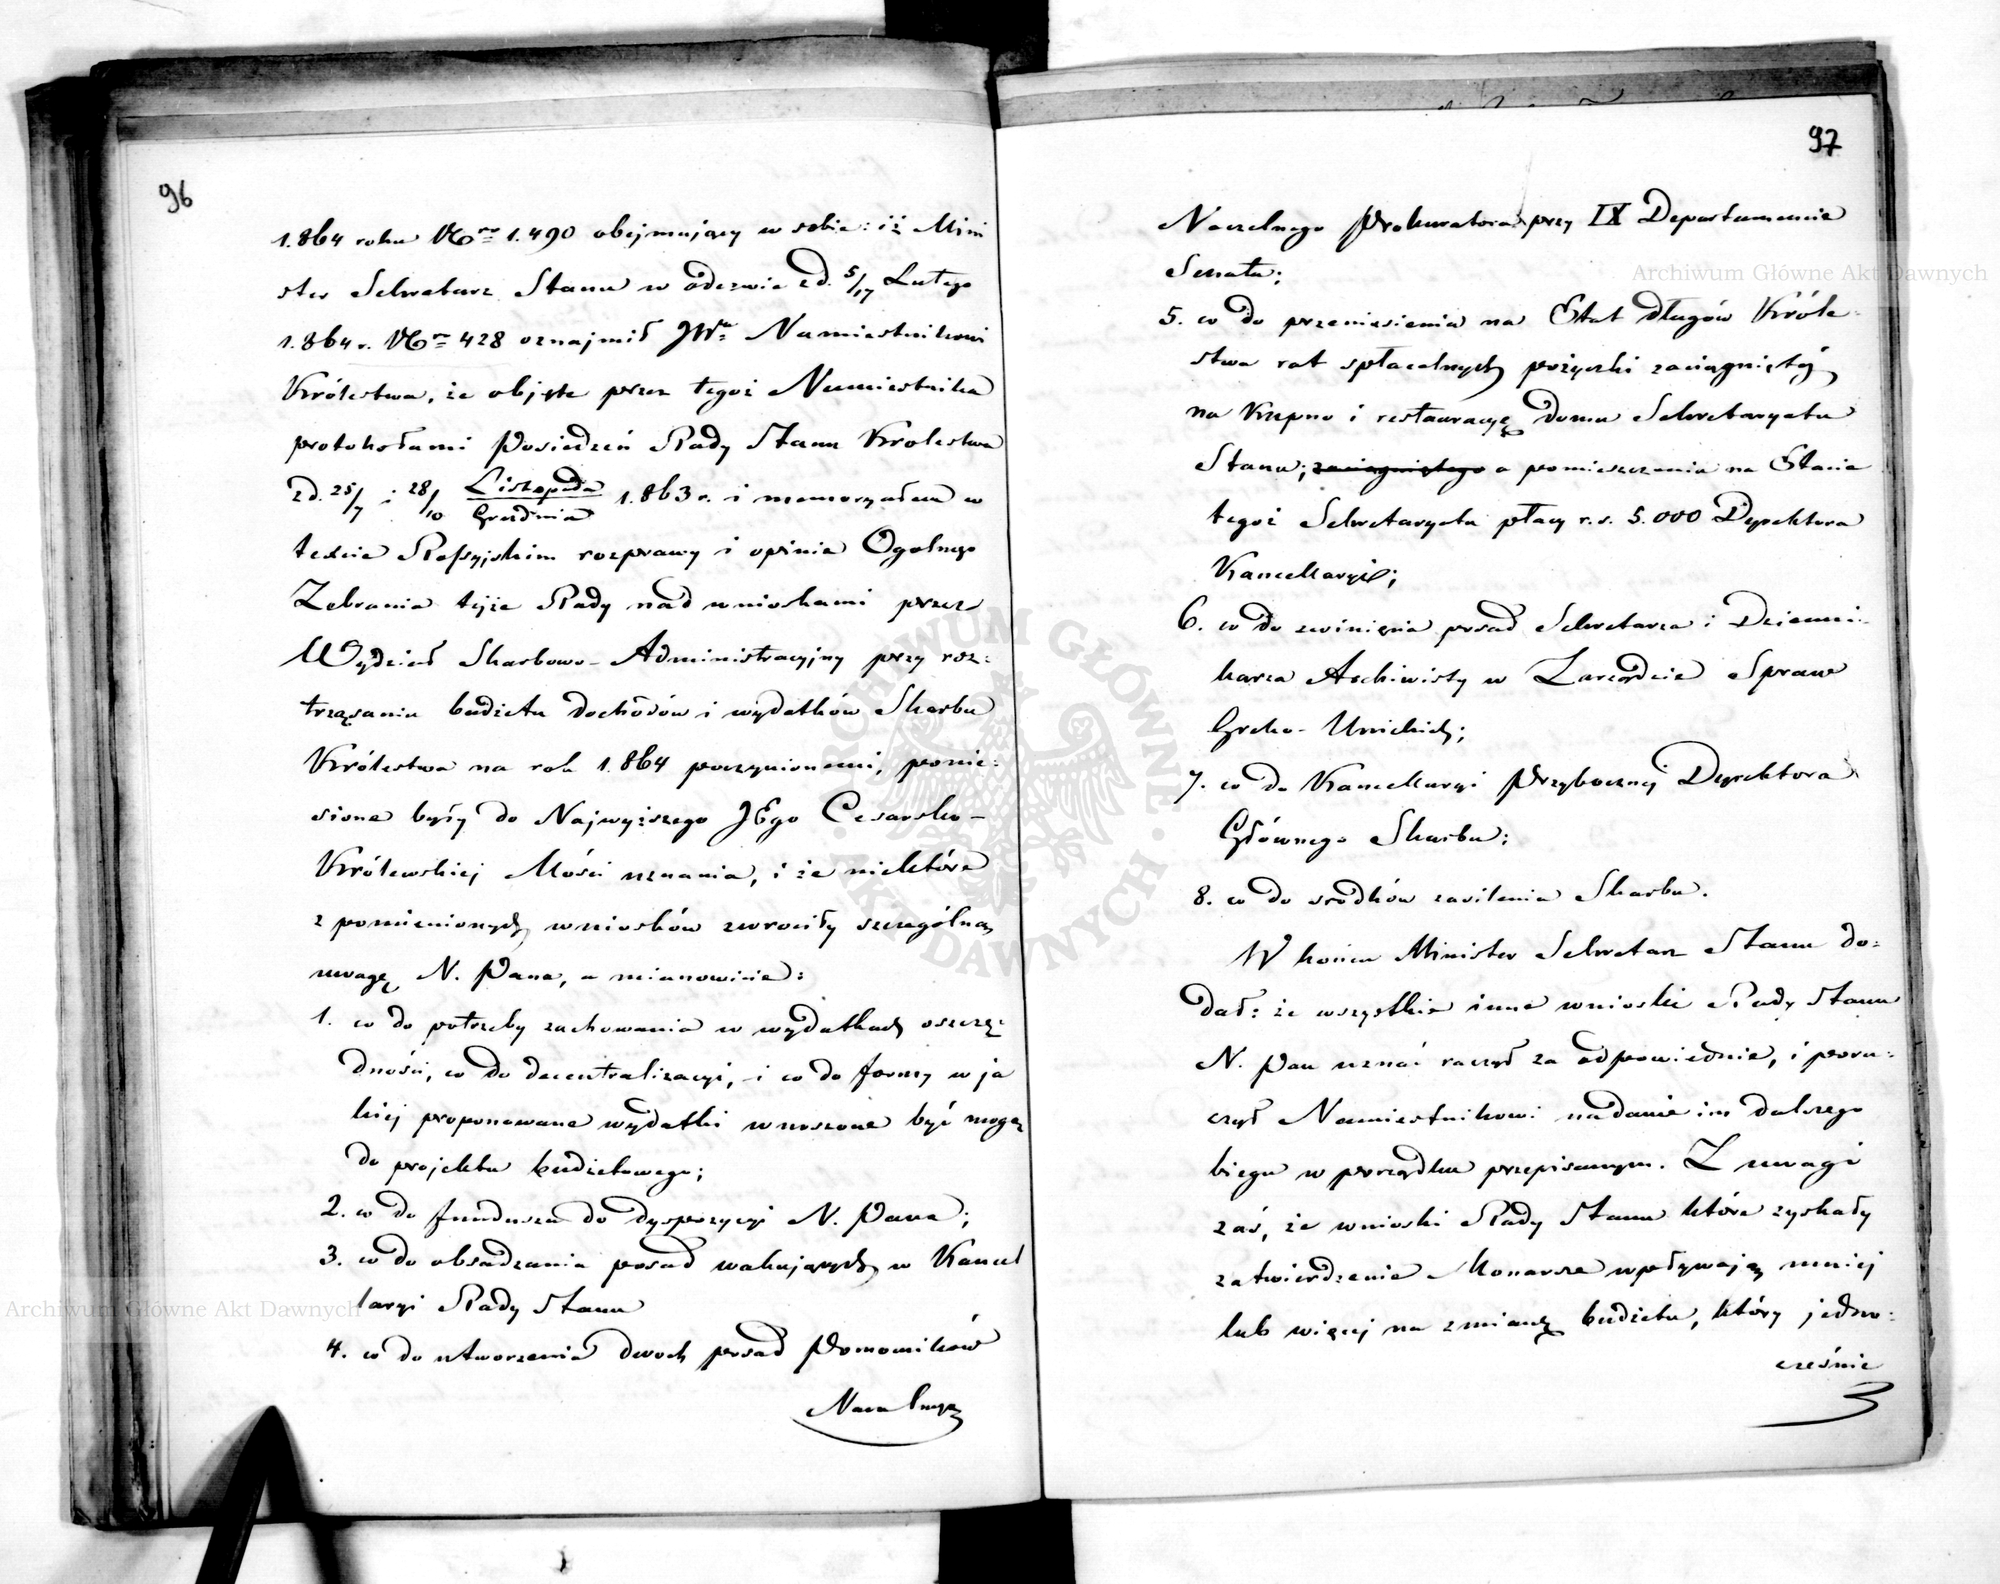 96
1.864 roku Nro 1.490 obejmujący w sobie: iż Mini
ster Sekretarz Stanu w odezwie z d. 5/17 Lutego
1.864 r. Nro 428 oznajmił JW. Namiestnikowi
Królestwa, że objęte przez tegoż Namiestnika
protokołami Posiedzeń Rady Stanu Królestwa
z d. 25/7 i 28/10 Listopada/Grudnia 1.863 r. i memoryałem w
texcie Rossyjskim rozprawy i opinie Ogolnego
Zebrania tejże Rady nad wnioskami przez
Wydział Skarbowo-Administracyjny przy roz-
trząsaniu budżetu dochodów i wydatków Skarbu
Królestwa na rok 1.864 poczynionemi, ponie-
sione były do Najwyższego JEgo Cesarsko-
Królewskiej Mości uznania, i że niektóre
z pomienionych wniosków zwrociły szczególną
uwagę N. Pana, a mianowicie:
1. co do potrzeby zachowania w wydatkach oszczę-
dności, co do decentralizacyi, i co do formy w ja
kiej proponowane wydatki wnoszone być mogą
do projektu budżetowego;
2. co do funduszu do dyspozycyi N. Pana;
3. co do obsadzania posad wakujących w Kancel
laryi Rady Stanu
4. co do utworzenia dwoch posad Pomocników
Naczelnego
97
Naczelnego Prokuratora przy IX Departamencie
Senatu;
5. co do przeniesienia na Etat długów Króle-
stwa rat spłacalnych pożyczki zaciągniętéj
na Kupno i restauracyę domu Sekretaryatu
Stanu; zaciągniętego a pomieszczenia na Etacie
tegoż Sekretaryatu płacy r.s. 5.000 Dyrektora
Kancellaryi;
6. co do zwinięcia posad Sekretarza i Dzienni-
karza Archiwisty w Zarządzie Spraw
Greko-Unickich;
7. co do Kancellaryi Przybocznej Dyrektora
Głównego Skarbu;
8. co do srodków zasilenia Skarbu.
W końcu Minister Sekretarz Stanu do-
dał: że wszystkie inne wnioski Rady Stanu
N. Pan uznać raczył za odpowiednie, i poru-
czył Namiestnikowi nadanie im dalszego
biegu w porządku przepisanym. Z uwagi
zaś, że wnioski Rady Stanu które zyskały
zatwierdzenie Monarsze wpływają mniej
lub więcej na zmianę budżetu, który jedno-
cześnie
Archiwum Główne Akt Dawnych
Archiwum Główne Akt Dawnych
ARCHIWUM GŁÓWNE · AKT DAWNYCH ·